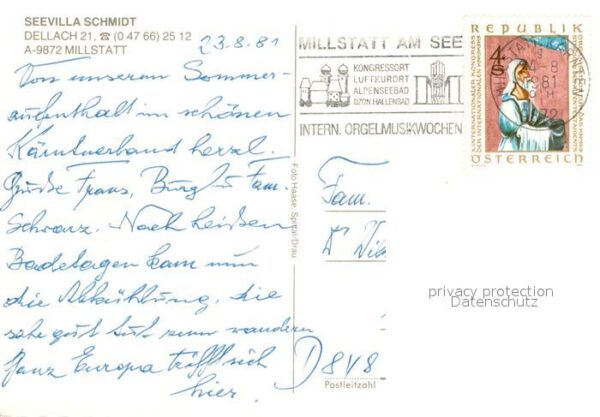 SEEVILLA SCHMIDT
DELLACH 21, ☎ (0 47 66) 25 12
A-9872 MILLSTATT
23.8.81
Von unserem Sommer-
aufenthalt im schönen
Kärntnerland herzl.
Grüße Franz, Burgl u Fam.
Schwarz. Nach heißen
Badetagen kam nun
die Abkühlung, die
sehr gut tut zum wandern
Ganz Europa trifft sich
hier.
Foto Haase Spittal/Drau
MILLSTATT AM SEE
KONGRESSORT
LUFTKURORT
ALPENSEEBAD
OZON HALLENBAD
INTERN. ORGELMUSIKWOCHEN
REPUBLIK
4
S
ÖSTERREICH
81
9872
Fam.
D 8 V 8
Postleitzahl
privacy protection
Datenschutz